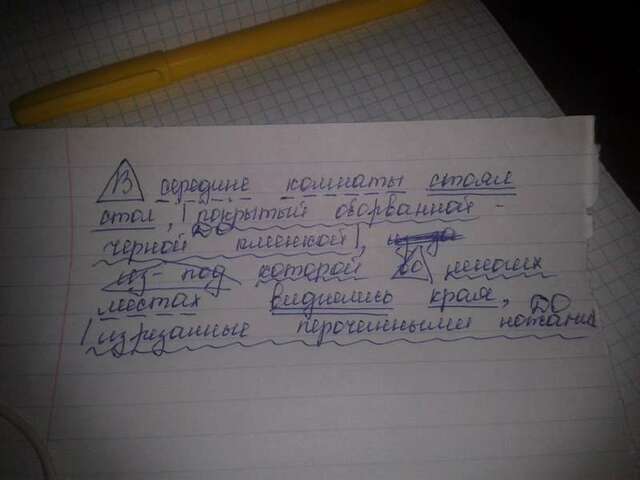 В середине комнаты стоял
стол, | покрытый оборванной
ДО
черной клеенкой |,
из-под которой во многих
местах виднелись края,
ДО
| изрезанные перочинными ножами